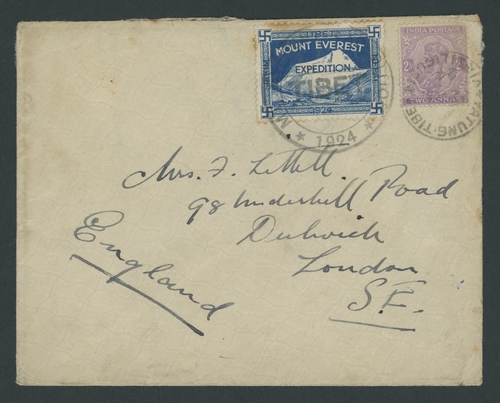 TIBET
MOUNT EVEREST
EXPEDITION
TIBET
1924
1924
INDIA POSTAGE
TWO ANNAS
YATUNG·TIBET
Mrs. F. Littell
98 Underhill Road
Dulwich
London
S.E.
England